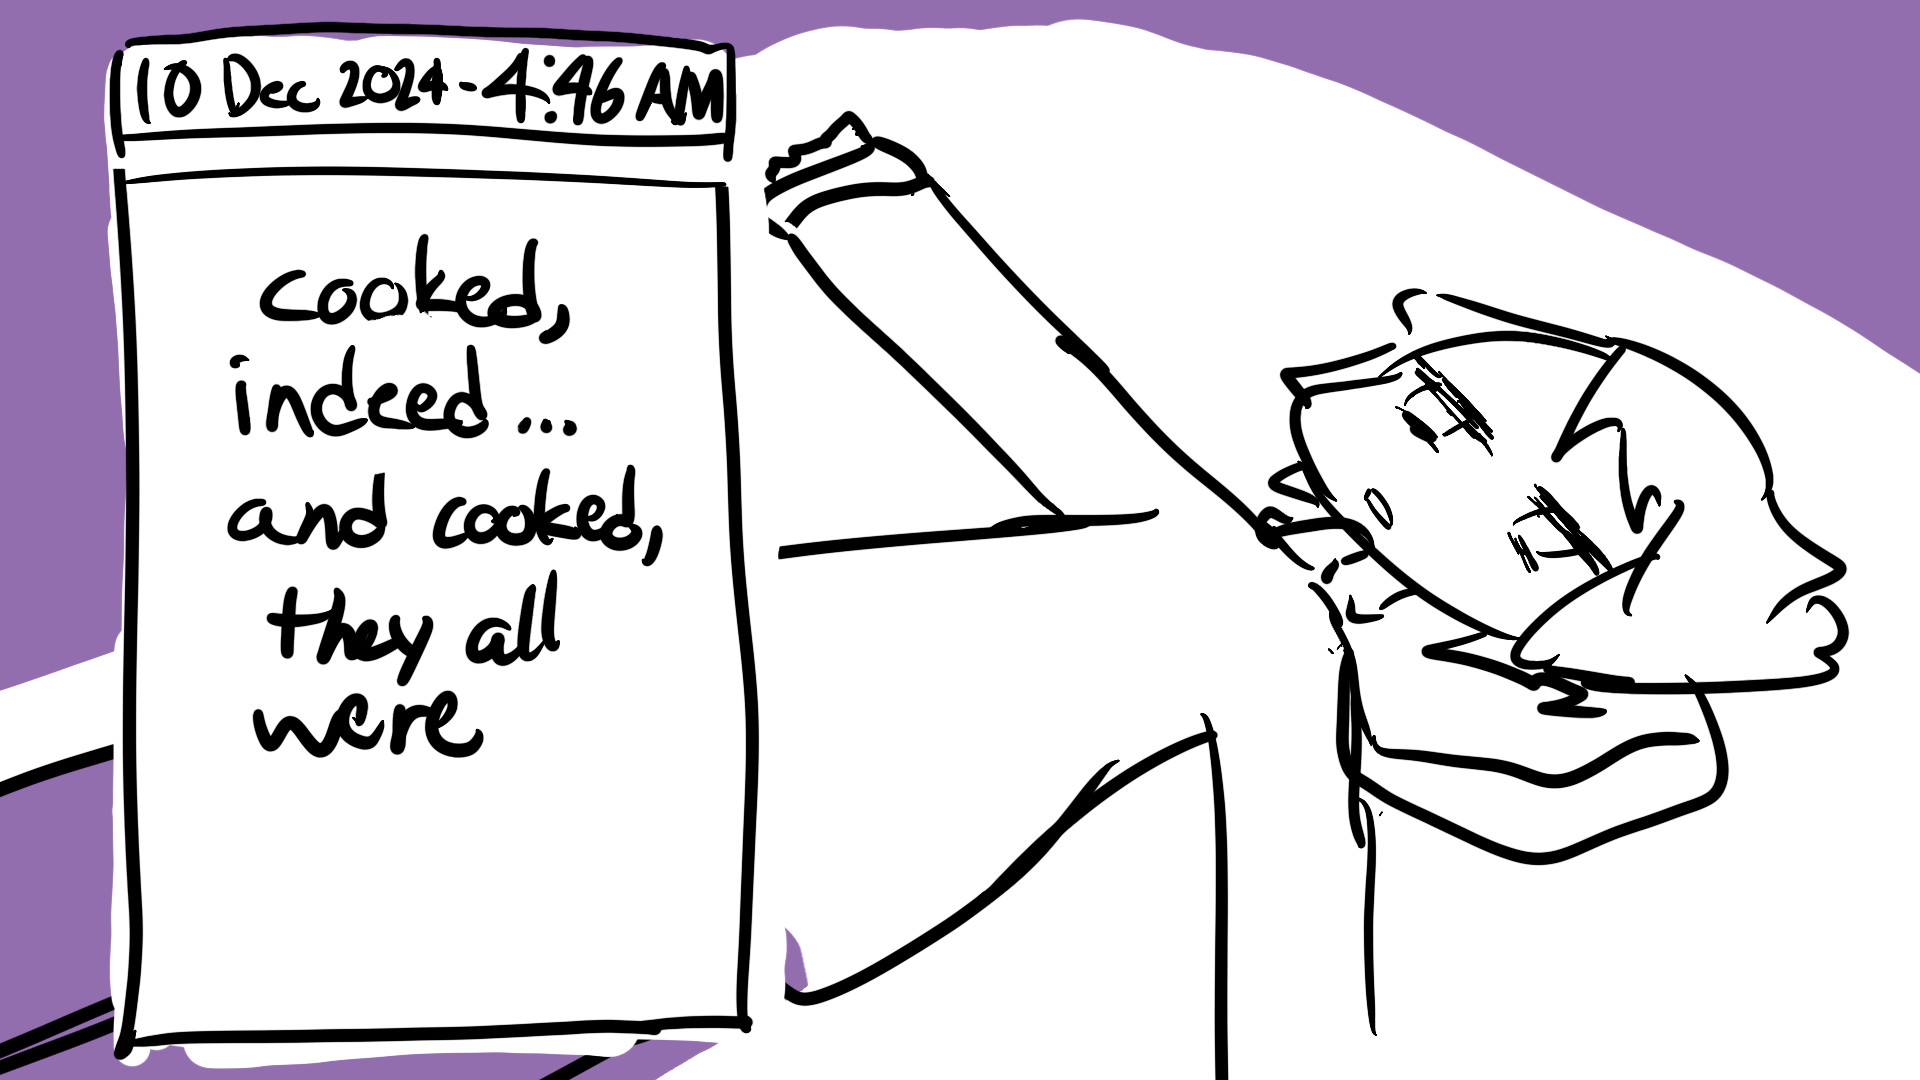 10 Dec 2024 - 4:46 AM
cooked,
indeed...
and cooked,
they all
were